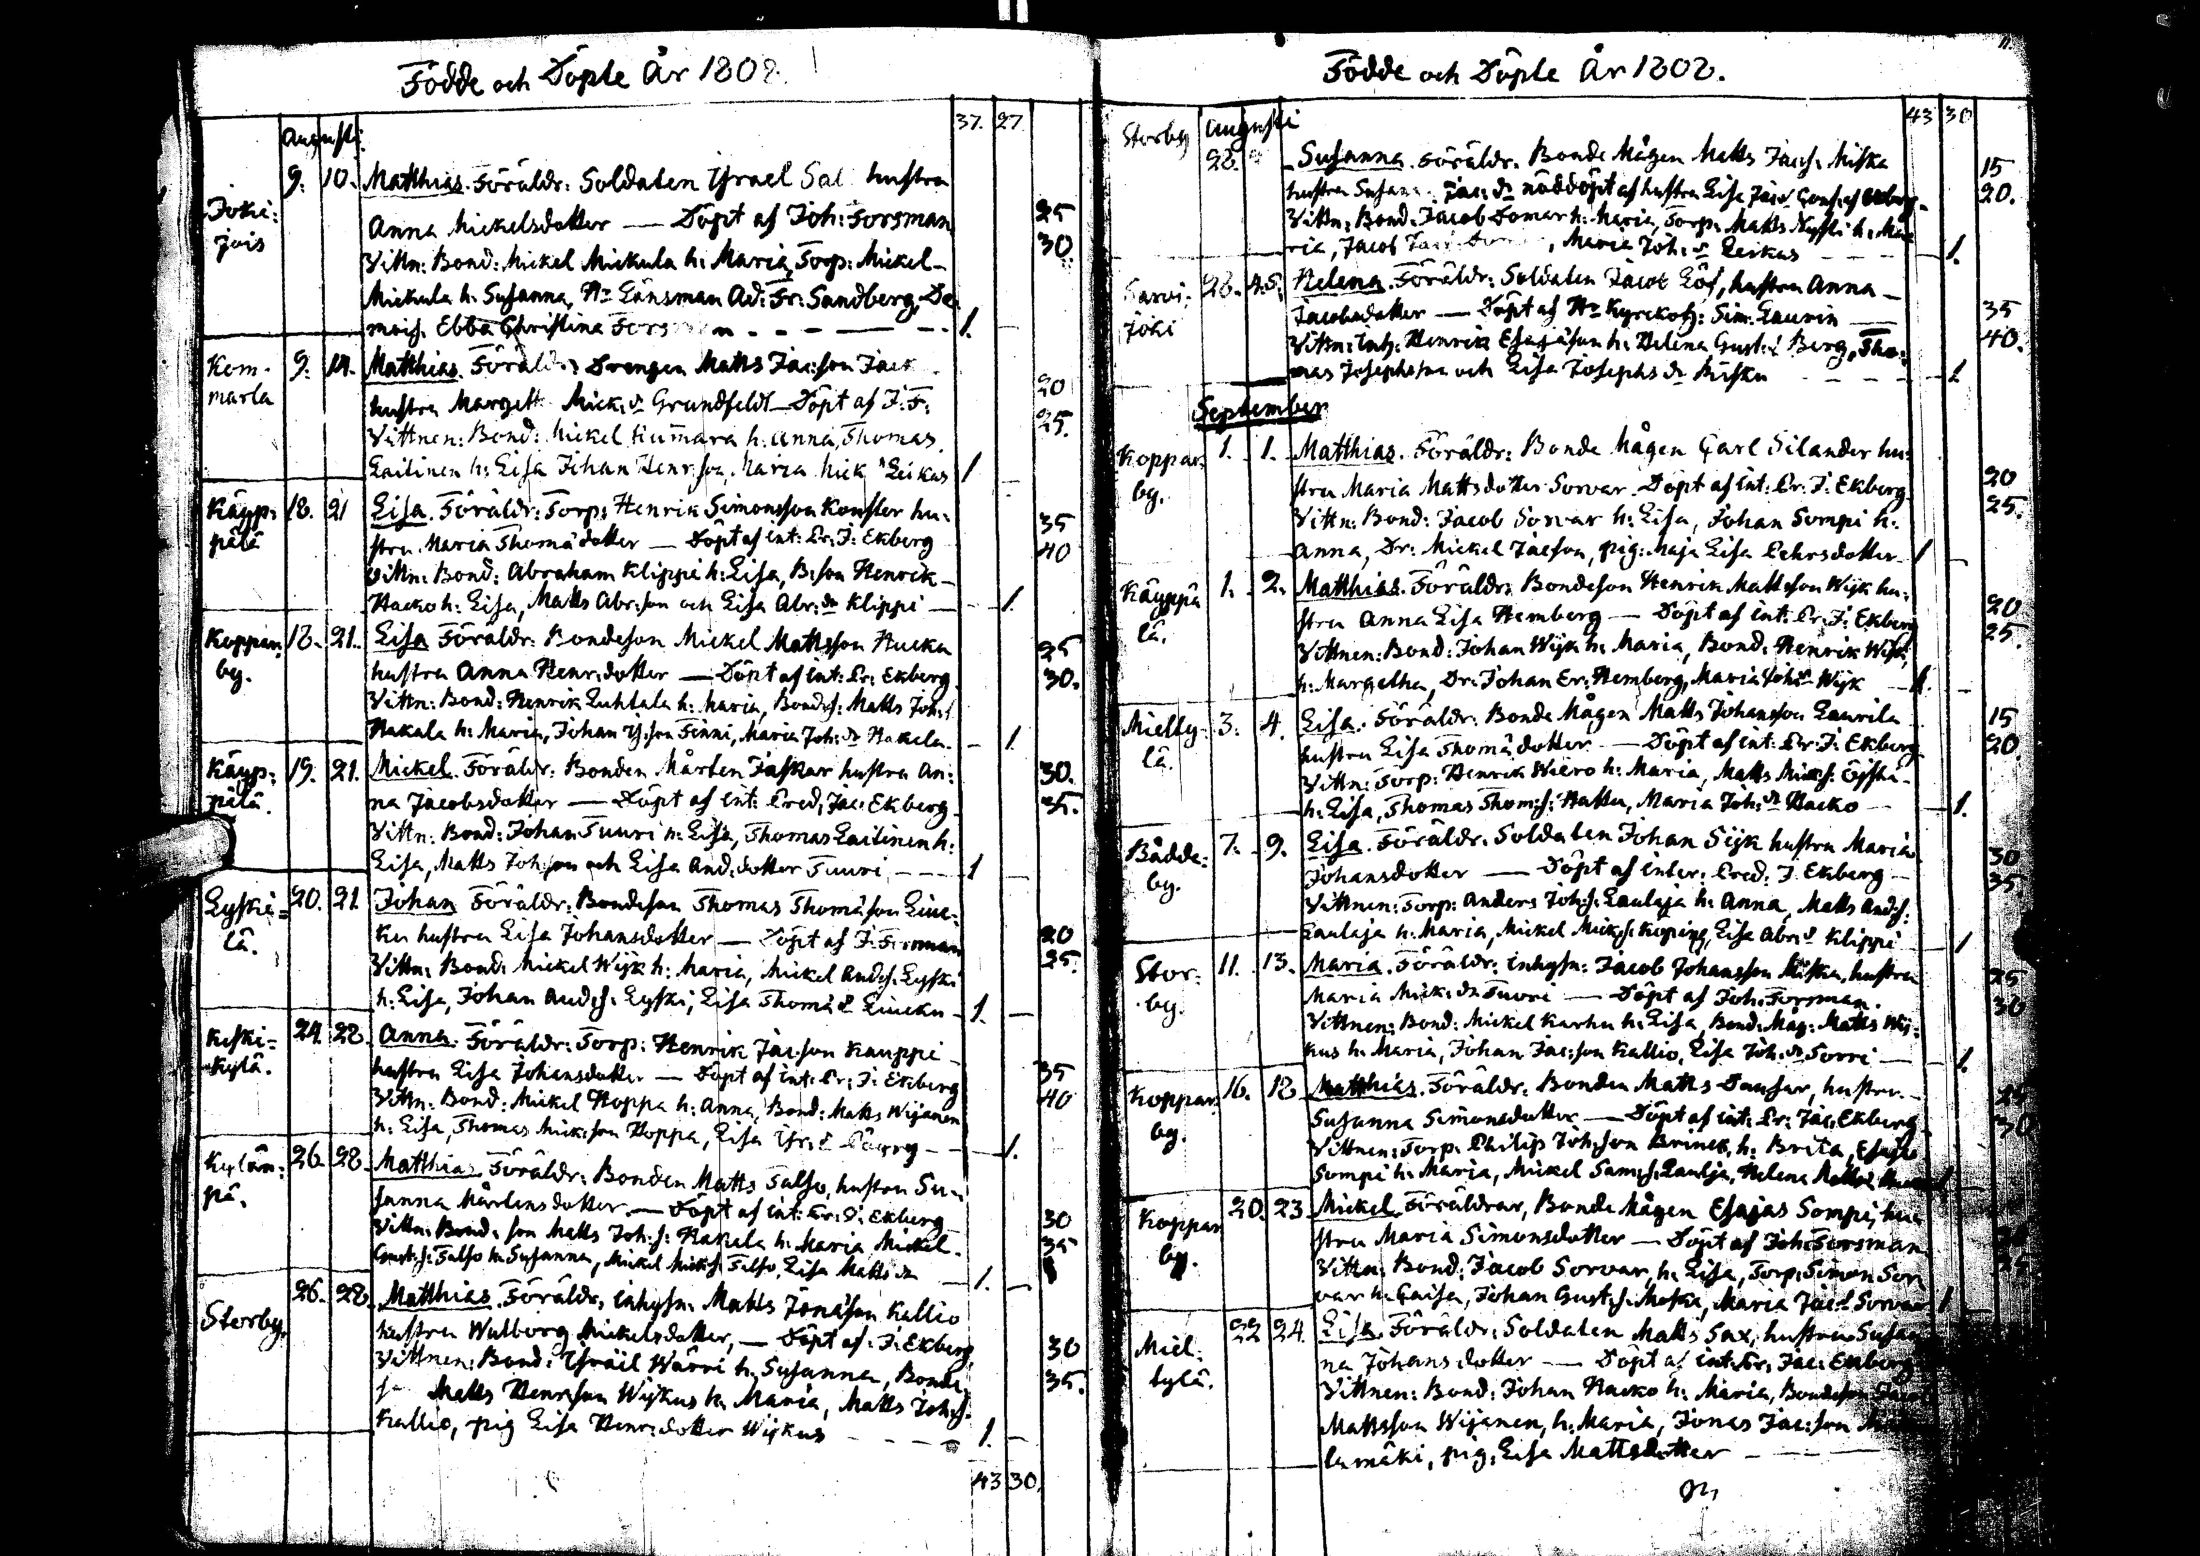 Födde och Döpte År 1808.
37. 27
Augusti
Joki=
jois
9. 10. Matthias. Föräldr: Soldaten Israel Sal hustru
Anna Mickelsdotter — Döpt af Joh: Forsman 25
Vittn: Bond: Mickel Mickula h: Maria, Torp: Mickel 30
Mickula h: Susanna, Hr Länsman Ad: Fr: Sandberg, De
mois. Ebba Christina 1. —
Kom-
marla
9. 14. Matthias. Föräldr: Drengen Matts Jac:son
hustru Margett Mick: dr Grundfeldt — Döpt af J: F: 20
Vittnen: Bond: Mickel Kummara h: Anna, Thomas 25.
Lailinen h: Lisa Johan Henr:son, Maria Mick Leikas 1
Käyp=
pälä
18. 21 Lisa. Föräldr: Torp: Henrik Simonsson Konster hu= 35
stru Maria Thomädotter — Döpt af int: Pr: J: Ekberg 40
Vittn: Bond: Abraham Klippi h: Lisa, B:son Henrik
Hacko h: Lisa, Matts Abr:son och Lisa Abr: dr Klippi — 1.
Koppar
by.
18. 21. Lisa Föräldr: Bondeson Mickel Mattsson Hucka 25
hustru Anna Henr:dotter — Döpt af int: Pr: Ekberg 30.
Vittn: Bond: Henrik Luhtala h: Maria, Bond:s: Matts Joh:s
Hakala h: Maria, Johan Is:son Finni, Maria Joh: dr Hakala. — 1.
Käyp=
pälä.
19. 21. Mickel. Föräldr: Bonden Mårten Jaskar hustru An= 30.
na Jacobsdotter — Döpt af int: Pred: Jac: Ekberg 35.
Vittn: Bond: Johan Tuuri h: Lisa, Thomas Lailinen h:
Lisa, Matts Joh:son och Lisa And:dotter Tuuri — 1 —
Lyski=
lä.
20. 21. Johan Föräldr: Bondeson Thomas Thomäson Liuc=
ku hustru Lisa Johansdotter — Döpt af J: Forsman 20
Vittn: Bond: Mickel Wijk h: Maria, Mickel And:s: Lyski 25.
h: Lisa, Johan And:s: Lyski, Lisa Thomä dr Liucku — 1. —
Keski=
kylä.
24. 28. Anna. Föräldr: Torp: Henrik Jac:son Kauppi
hustru Lisa Johansdotter — Döpt af int: Pr: J: Ekberg 35
Vittn: Bond: Mickel Hoppa h: Anna, Bond: Matts Wijanen 40
h: Lisa, Thomas Mick:son Hoppa, Lisa Isr: dr — 1.
Kylän=
pä.
26. 28. Matthias Föräldr: Bonden Matts Talso, hustru Su=
sanna Mårtensdotter — Döpt af int: Pr: J: Ekberg 30
Vittn: Bond:son Matts Joh:s: Hakala h: Maria Mickel 35
Talso h: Susanna, Mickel Mick:s: Talso, Lisa Matts dr — 1. —
Storby.
26. 28. Matthias. Föräldr: inhysn: Matts Jonäson Kallio
hustru Walborg Mickelsdotter, — Döpt af: J: Ekberg, 30
Vittnen: Bond: Israil Wärri h: Susanna, Bonde 35.
Matts Henr:son Wijkus h: Maria, Matts Joh:s:
Kallio, pig Lisa Henr:dotter Wijkus — — 1. —
43 30.
Födde och Döpte År 1808.
43 30
Storby
Augusti
28. Susanna. Föräldr: Bonde Mågen Matts Jac:s: Miska 15
hustru Susan: Jac: dr nöddöpt af hustru Lisa 20.
Vittn: Bond: Jacob Domar h: Maria, Torp: Matts h: Ma
ria, Jacob , Maria Joh: dr Leikas — — 1.
Sarvi=
joki
28. Helena. Föräldr: Soldaten Jacob Löf, hustru Anna
Jacobsdotter — Döpt af Hr Kyrckoh: Sim: Laurin 35
Vittn: Inh: Henrik Esajäson h: Helena Gust: dr Berg, Tho= 40.
mas Josephsson och Lisa Josephs dr — — 1
September
Koppar
by.
1. 1. Matthias. Föräldr: Bonde Mågen Carl Silander hu=
stru Maria Mattsdotter Sorvar. Döpt af int: Pr: J: Ekberg 20
Vittn: Bond: Jacob Sorvar h: Lisa, Johan Sompi h: 25.
Anna, Dr: Mickel Jacson, pig: Maja Lisa Pehrsdotter 1 —
Käyppä
lä.
1. 2. Matthias. Föräldr: Bondeson Henrik Mattsson Wijk hu=
stru Anna Lisa Hemberg — Döpt af int: Pr: J: Ekberg 20
Vittnen: Bond: Johan Wijk h: Maria, Bond: Henrik Wijk 25.
h: Margetha, Dr: Johan Er: Hemberg, Maria Joh: dr Wijk — 1. —
Mielty=
lä.
3. 4. Lisa. Föräldr: Bonde Mågen Matts Johansson Laurila 15
hustru Lisa Thomädotter — Döpt af int: Pr: J: Ekberg 20
Vittn: Torp: Henrik Wiero h: Maria, Matts Mick:s:
h: Lisa, Thomas Thom:s: Hattu, Maria Joh: dr Hacko — 1.
Bådde=
by.
7. 9. Lisa. Föräldr: Soldaten Johan Sijk hustru Maria 30
Johansdotter — Döpt af inter: Pred: J Ekberg — 35
Vittnen: Torp: Anders Joh:s: Laulaja h: Anna, Matts And:s:
Laulaja h: Maria, Mickel Mick:s: Koping, Lisa Abr: dr Klippi — 1
Stor=
by.
11. 13. Maria. Föräldr: inhysn: Jacob Johansson Miska, hustru 25
Maria Mick: dr Tuori — Döpt af Joh: Forsman. 30
Vittnen: Bond: Mickel Karhu h: Lisa, Bond: Måg: Matts Wij=
kus h: Maria, Johan Jac:son Kallio, Lisa Joh: dr Sorri — 1.
Koppar
by.
16. 18 Matthias. Föräldr: Bonden Matts Dansar, hustru 25
Susanna Simonsdotter — Döpt af int: Pr: Jac: Ekberg 30
Vittnen: Torp: Philip Joh:son Brinck, h: Brita, Esajas
Sompi h: Maria, Mickel Sam:s: Laulja, Helena 1 —
Koppar
by.
20. 23. Mickel. Föräldrar, Bonde Mågen Esajas Sompi, hu
stru Maria Simonsdotter — Döpt af Joh: Forsman 20
Vittn: Bond: Jacob Sorvar, h: Lisa, Torp: Simon Sor 25
var h: Caisa, Johan Gust:s: Moska, Maria Jac: dr Sorvar 1 —
Miel=
tylä.
22 24. Lisa. Föräldr: Soldaten Matts Sax, hustru Susan
na Johansdotter — Döpt af int: Pr: Jac: Ekberg
Vittnen: Bond: Johan Hacko h: Maria, Bondeson Jacob
Mattsson Wijanen, h: Maria, Jonas Jac:son
lamäki, pig: Lisa Mattsdotter — —